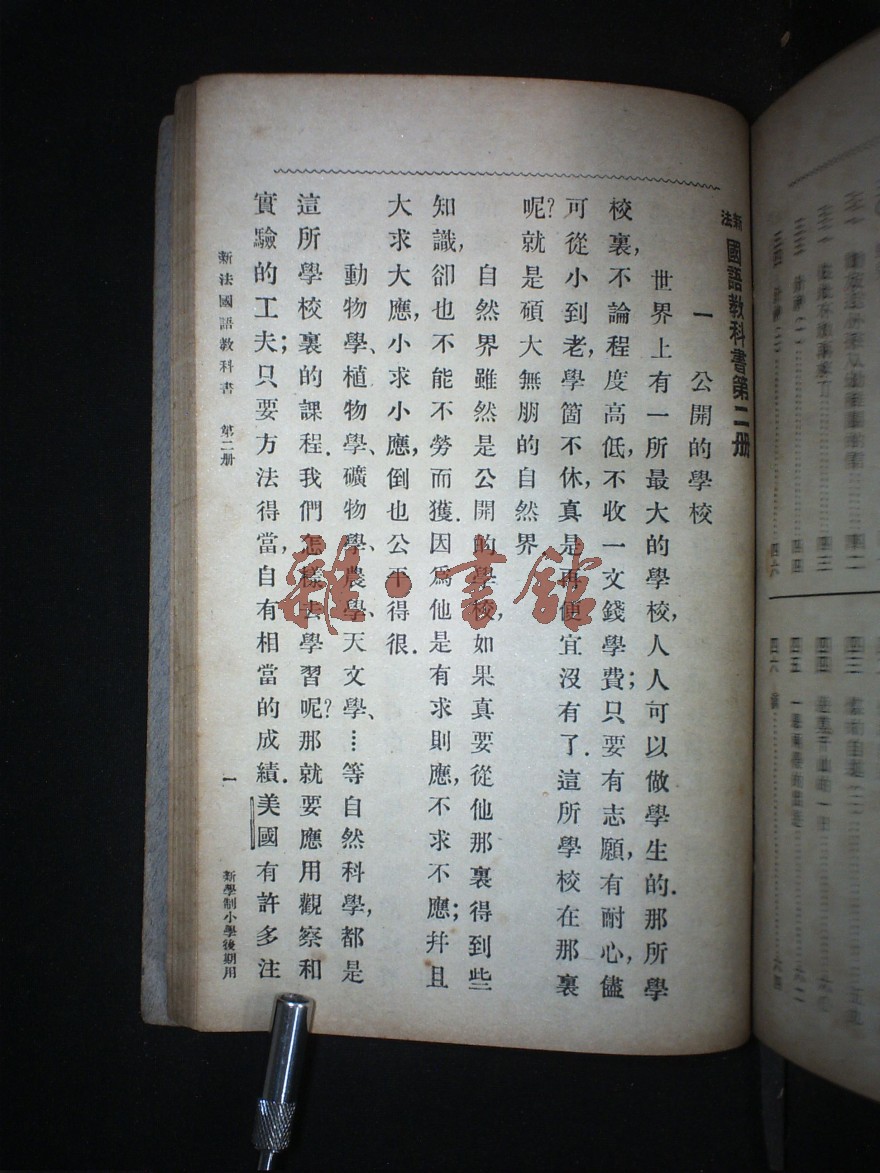 新法國語教科書第二册
一 公開的學校
世界上有一所最大的學校,人人可以做學生的.那所學
校裏,不論程度高低,不收一文錢學費;只要有志願,有耐心,儘
可從小到老,學箇不休,真是再便宜沒有了.這所學校在那裏
呢?就是碩大無朋的自然界.
自然界雖然是公開的學校,如果真要從他那裏得到些
知識,卻也不能不勞而獲.因爲他是有求則應,不求不應;幷且
大求大應,小求小應,倒也公平得很.
動物學、植物學、礦物學、農學、天文學、…等自然科學,都是
這所學校裏的課程.我們怎樣去學習呢?那就要應用觀察和
實驗的工夫;只要方法得當,自有相當的成績.美國有許多注
新法國語教科書 第二册
一
新學制小學後期用
雜·書館